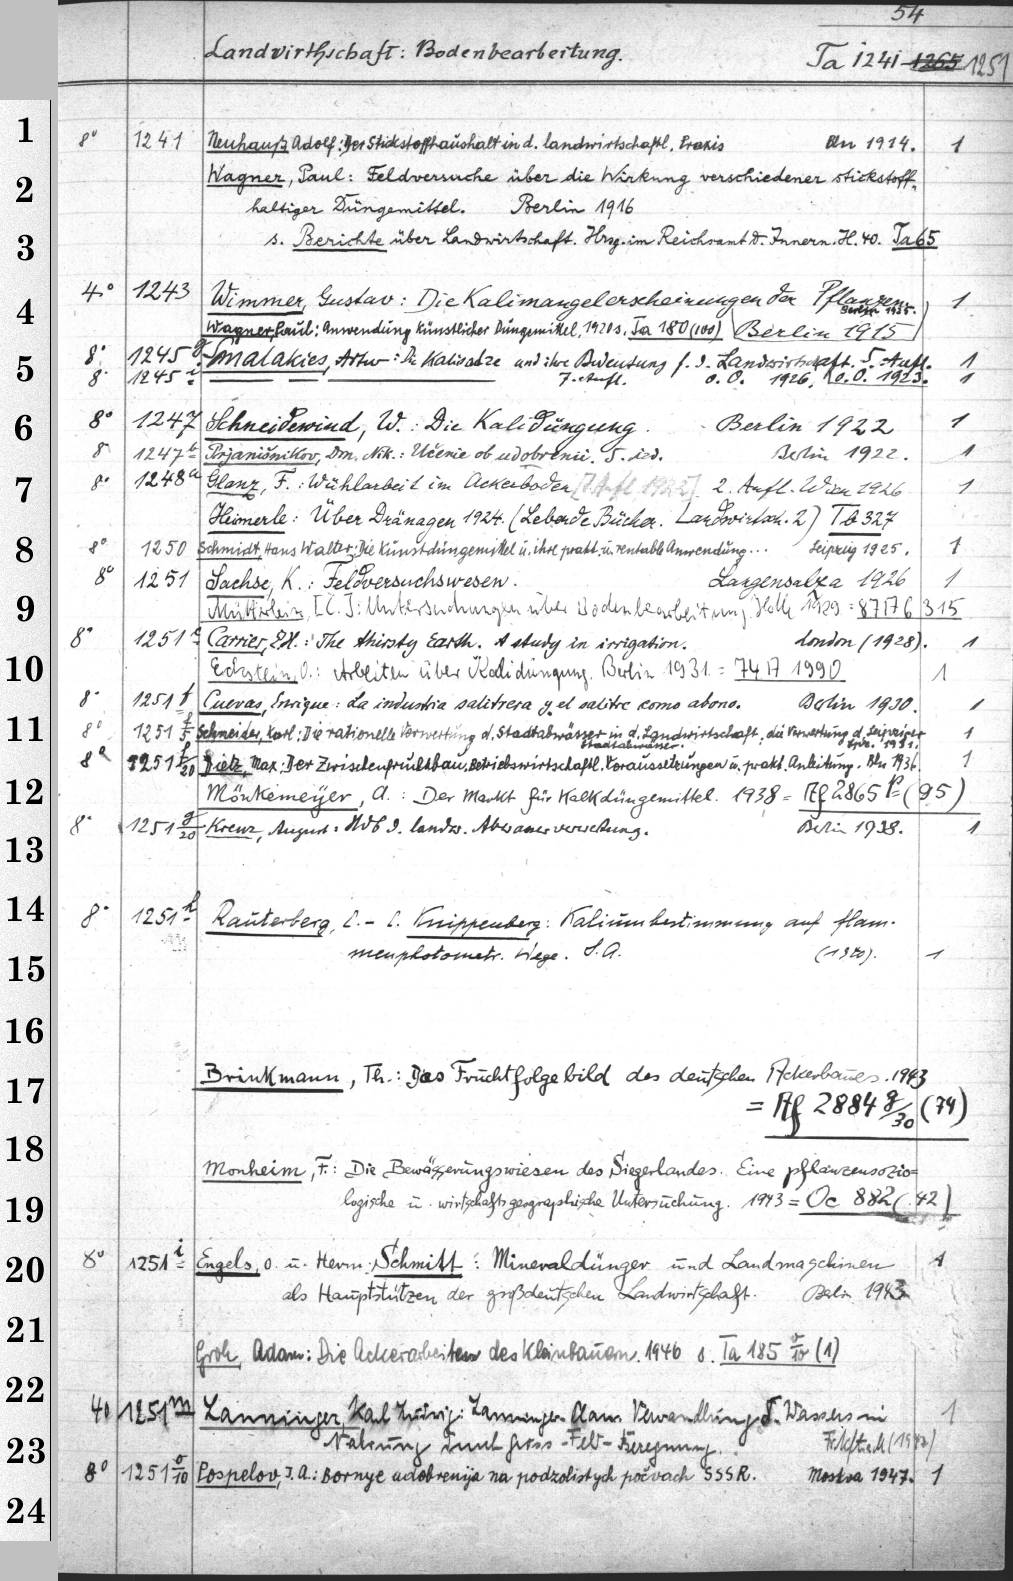 54
Landwirthschaft: Bodenbearbeitung. Ta 1241-1265 1251
1
8° 1241 Neuhauß, Adolf: Der Stickstoffhaushalt in d. landwirtschaftl. Praxis Bln 1914. 1
2 Wagner, Paul: Feldversuche über die Wirkung verschiedener stickstoff-
haltiger Düngemittel. Berlin 1916
3 s. Berichte über Landwirtschaft. Hrsg. im Reichsamt d. Innern. H. 40. Ta 65
4° 1243 Wimmer, Gustav: Die Kalimangelerscheinungen der Pflanzen. 1
4 Berlin 1935.
Wagner, Paul: Anwendung künstlicher Düngemittel, 1920 s. Ta 180 (100) Berlin 1915
8° 1245 g Smalakies, Artur: Die Kalisalze und ihre Bedeutung f. d. Landwirtschaft. 5. Aufl. 1
5 8° 1245 i 7. Aufl. o. O. 1926. o. O. 1923. 1
6 8° 1247 Schneidewind, W.: Die Kalidüngung. Berlin 1922 1
8° 1247 a Prjanišnikov, Dm. Nik.: Učenie ob udobrenii. 5. izd. Berlin 1922. 1
7 8° 1248 a Glanz, F.: Wühlarbeit im Ackerboden [1. Aufl. 1922] 2. Aufl. Wien 1926 1
Heimerle: Über Dränagen 1924. (Lebende Bücher. Landwirtsch. 2) Tb 327
8 8° 1250 Schmidt, Hans Walter: Die Kunstdüngemittel u. ihre prakt. u. rentable Anwendung... Leipzig 1925. 1
8° 1251 Sachse, K.: Feldversuchswesen. Langensalza 1926 1
9 Mütterlein, [C.]: Untersuchungen über Bodenbearbeitung. Halle 1929 = 87 A 6315
8° 1251 e Carrier, E.H.: The thirsty Earth. A study in irrigation. London (1928). 1
10 Eckstein, O.: Arbeiten über Kalidüngung. Berlin 1931. = 74 A 1990 1
8° 1251 f Cuevas, Enrique: La industria salitrera y el salitre como abono. Berlin 1930. 1
11 8° 1251 f/5 Schneider, Karl: Die rationelle Verwertung d. Stadtabwässer in d. Landwirtschaft, die Verwertung d. Leipziger 1
Stadtabwässer. Lpz. 1931.
8° 1251 f/20 Dietz, Max: Der Zwischenfruchtbau, Betriebswirtschaftl. Voraussetzungen u. prakt. Anleitung. Bln 1936. 1
12 Mönkemeyer, A.: Der Markt für Kalkdüngemittel. 1938 = Af 2865 p (95)
8° 1251 g/20 Kreuz, August: Hdb d. landw. Abwasserverwertung. Berlin 1938. 1
13
14 8° 1251 h Rauterberg, E. - E. Knippenberg: Kaliumbestimmung auf flam-
menphotometr. Wege. S.A. (1940). 1
15
16
Brinkmann, Th.: Das Fruchtfolgebild des deutschen Ackerbaues. 1943
17 = Af 2884 g/30 (74)
18
Monheim, F.: Die Bewässerungswiesen des Siegerlandes. Eine pflanzensozio-
19 logische u. wirtschaftsgeographische Untersuchung. 1943 = Oc 882 (42)
20 8° 1251 i Engels, O. u. Herm. Schmitt: Mineraldünger und Landmaschinen 1
als Hauptstützen der großdeutschen Landwirtschaft. Berlin 1943
21
Groh, Adam: Die Ackerarbeiten des Kleinbauern. 1946 s. Ta 185 v/10 (1)
22
40 1251 m Lanninger, Karl Ludwig: Lanninger Verwandlung d. Wassers in 1
23 Nahrung durch Gross-Feld-Beregnung.
8° 1251 o/10 Pospelov, I. A.: Bornye udobrenija na podzolistych počvach SSSR. Moskva 1947. 1
24